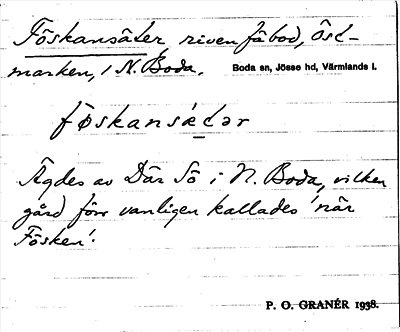 Föskansäter riven fäbod, Öst-
marken, i N. Boda. Boda sn, Jösse hd, Värmlands l.
føskansätər
Ägdes av Där Sö i N. Boda, vilken
gård förr vanligen kallades 'når
Fösken'.
P. O. GRANÉR 1938.